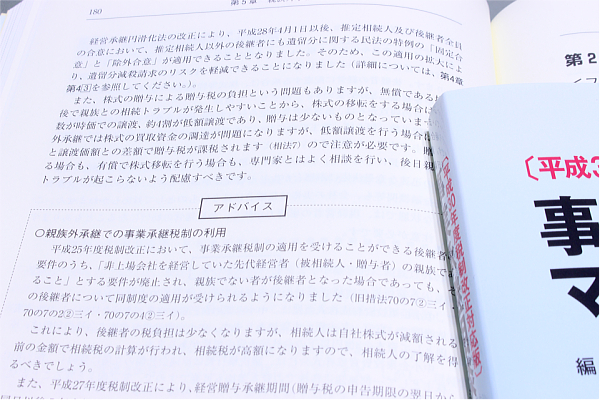 180
第5章
経営承継円滑化法の改正により、平成28年4月1日以後、推定相続人及び後継者全員
の合意において、推定相続人以外の後継者にも遺留分に関する民法の特例の「固定合
意」と「除外合意」が適用できることとなりました。そのため、この適用の拡大によ
り、遺留分減殺請求のリスクを軽減できることになりました（詳細については、第4章
第4③を参照してください。）。
また、株式の贈与による贈与税の負担という問題もありますが、無償である
後で親族との相続トラブルが発生しやすいことから、株式の移転をする場合は
数が時価での譲渡、約4割が低額譲渡であり、贈与は少ないものとなっていま
外承継では株式の買取資金の調達が問題になりますが、低額譲渡を行う場合
と譲渡価額との差額で贈与税が課税されます（相法7）ので注意が必要です。
る場合も、有償で株式移転を行う場合も、専門家とはよく相談を行い、後日
トラブルが起こらないよう配慮すべきです。
アドバイス
〇親族外承継での事業承継税制の利用
平成25年度税制改正において、事業承継税制の適用を受けることができる後継者
要件のうち、「非上場会社を経営していた先代経営者（被相続人・贈与者）の親族であ
ること」とする要件が廃止され、親族でない者が後継者となった場合であっても、そ
の後継者について同制度の適用が受けられるようになりました（旧措法70の7②三イ・
70の7の2②三イ・70の7の4②三イ）。
これにより、後継者の税負担は少なくなりますが、相続人は自社株式が減額される
前の金額で相続税の計算が行われ、相続税が高額になりますので、相続人の了解を得
るべきでしょう。
また、平成27年度税制改正により、経営贈与承継期間（贈与税の申告期限の翌日から
第2
〔平成30年度税制改正対応版〕
〔平成3
事
マ
編